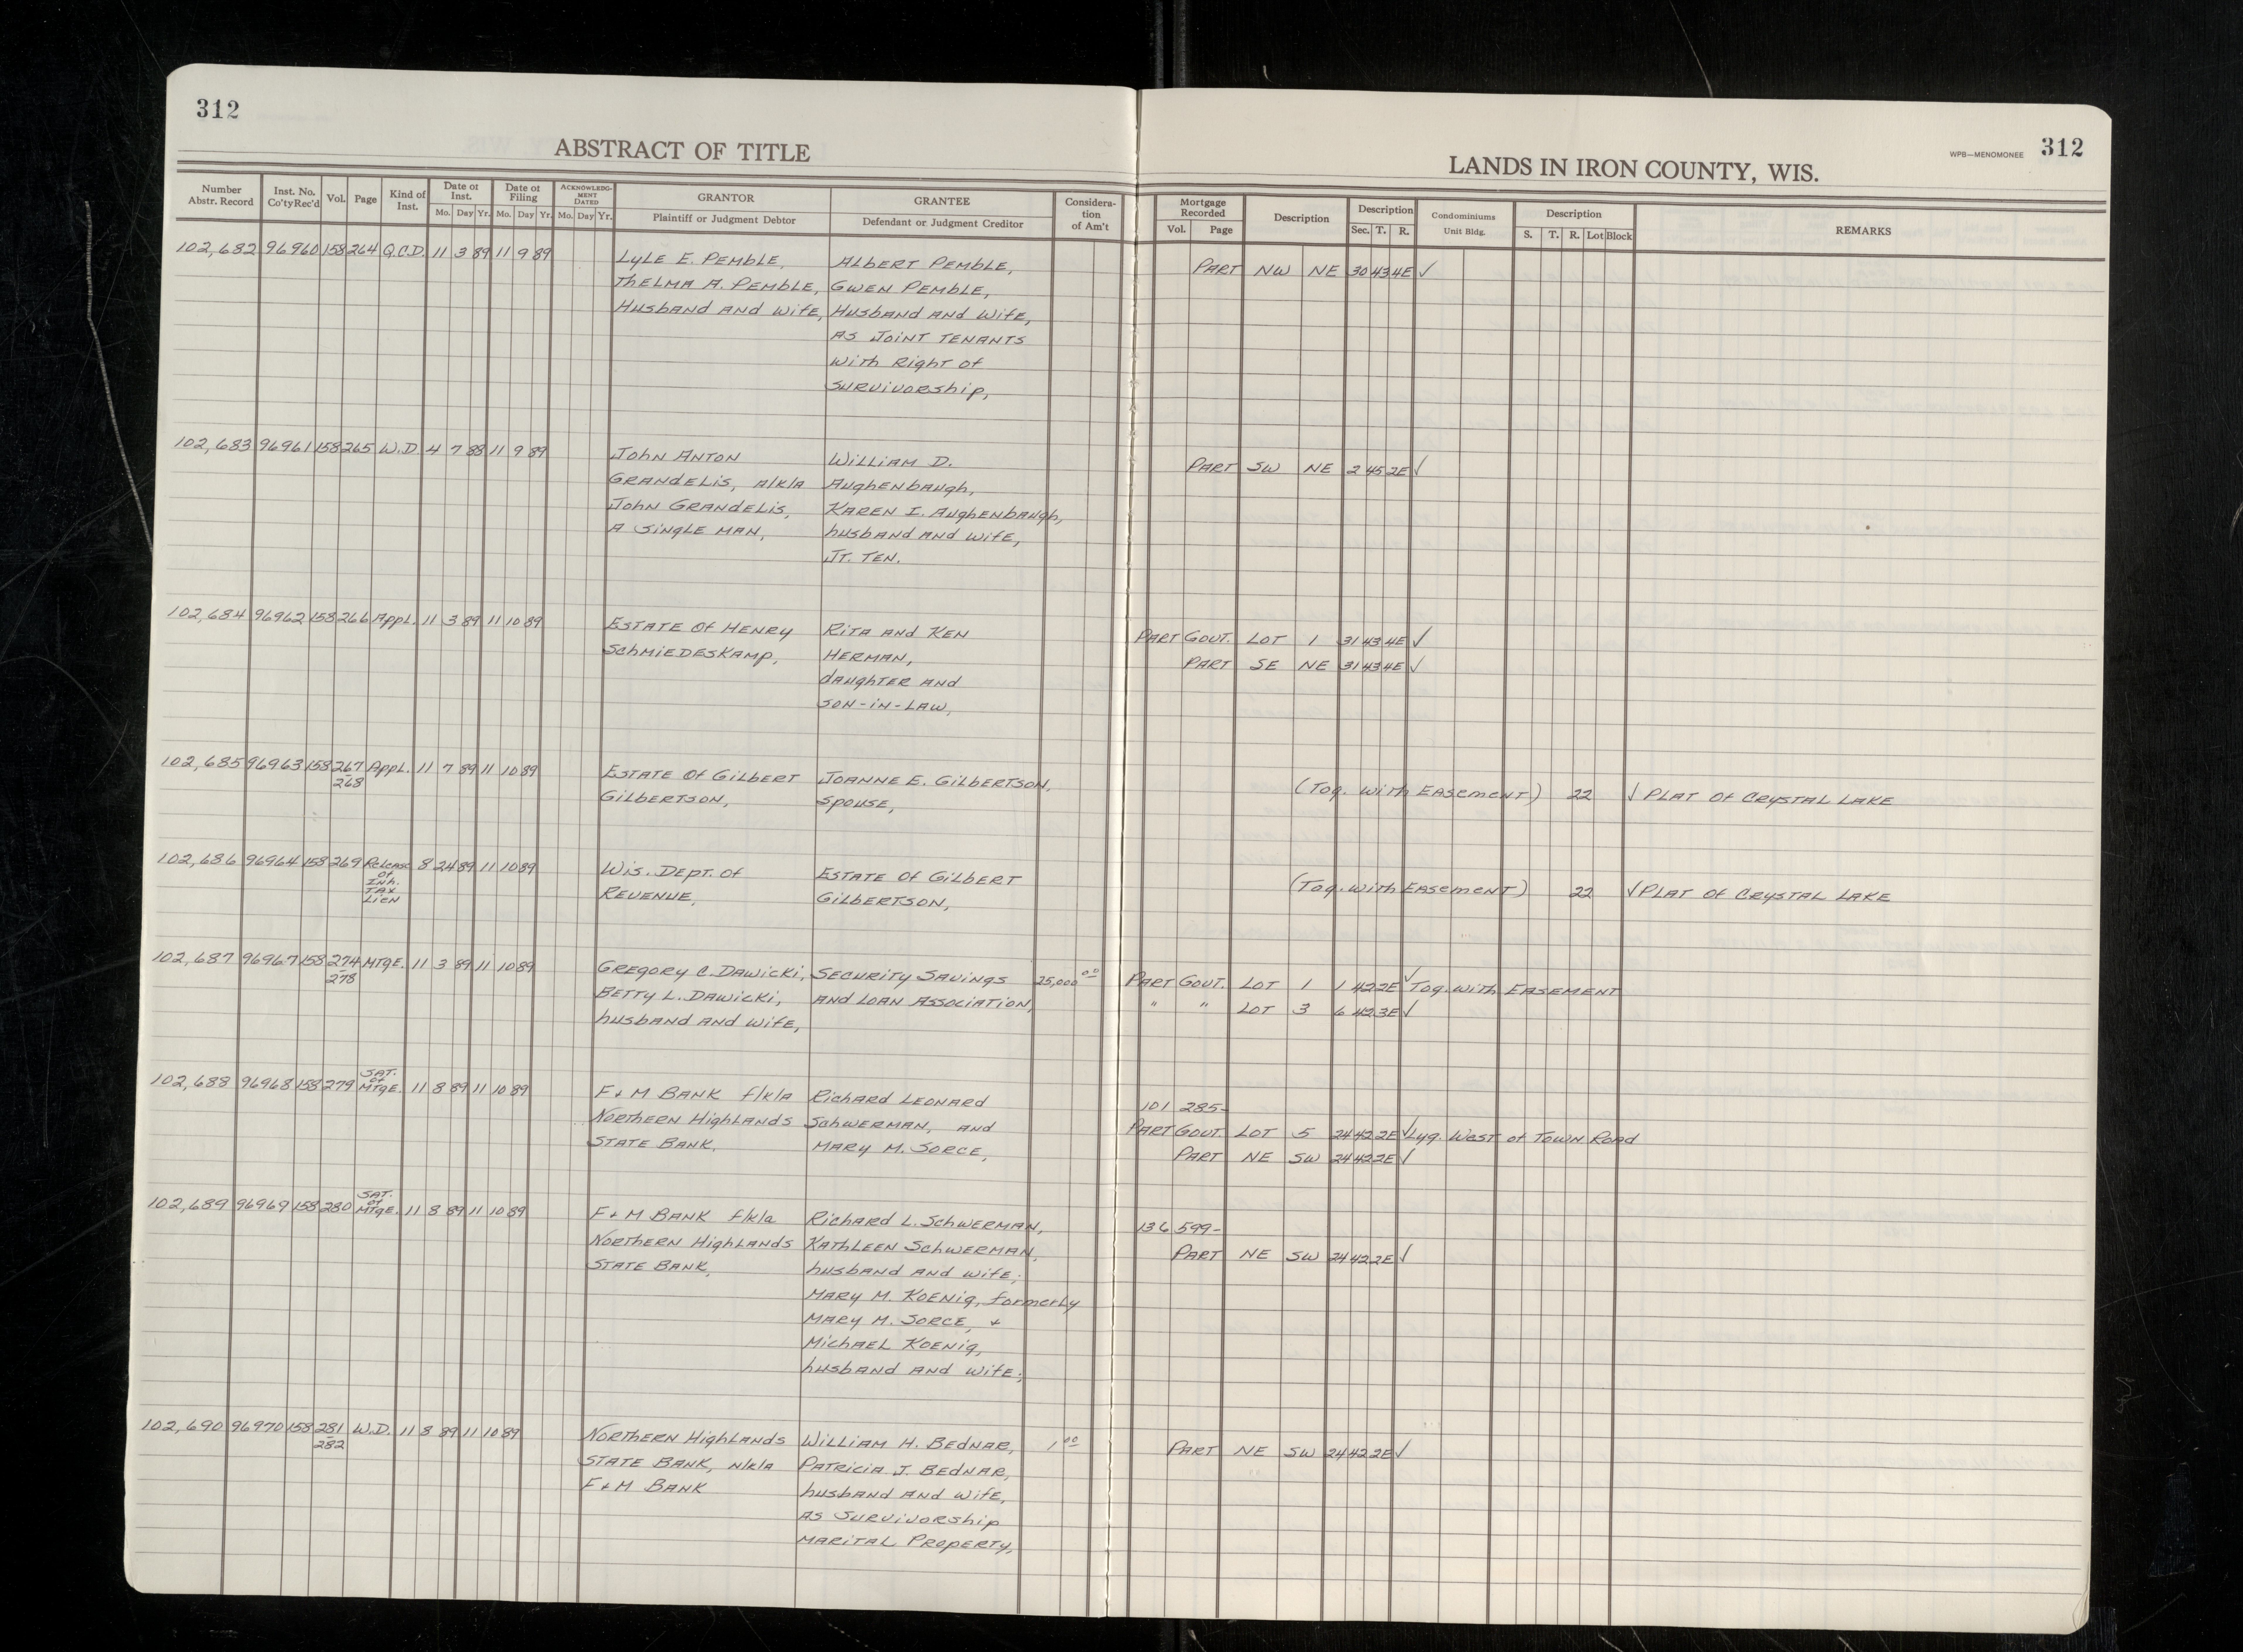 312
ABSTRACT OF TITLE
LANDS IN IRON COUNTY, WIS.
WPB—MENOMONEE 312
Number Abstr. Record Inst. No. Co'ty Rec'd Vol. Page Kind of Inst. Date of Inst. Mo. Day Yr. Date of Filing Mo. Day Yr. ACKNOWLEDGMENT DATED Mo. Day Yr. GRANTOR Plaintiff or Judgment Debtor GRANTEE Defendant or Judgment Creditor Consideration of Am't Mortgage Recorded Vol. Page Description Description Sec. T. R. Condominiums Unit Bldg. Description S. T. R. Lot Block REMARKS
102,682 96960 158 264 Q.C.D. 11 3 89 11 9 89 Lyle E. Pemble, Albert Pemble, Part NW NE 30 43 4E ✓
Thelma A. Pemble, Gwen Pemble,
Husband and wife, Husband and wife,
as Joint Tenants
with Right of
Survivorship,
102,683 96961 158 265 W.D. 4 7 88 11 9 89 John Anton William D. Part SW NE 2 45 2E ✓
Grandelis, a/k/a Aughenbaugh,
John Grandelis, Karen I. Aughenbaugh,
a single man, husband and wife,
Jt. Ten.
102,684 96962 158 266 Appl. 11 3 89 11 10 89 Estate of Henry Rita and Ken Part Govt. Lot 1 31 43 4E ✓
Schmiedeskamp, Herman, Part SE NE 31 43 4E ✓
daughter and
son-in-law,
102,685 96963 158 267-268 Appl. 11 7 89 11 10 89 Estate of Gilbert Joanne E. Gilbertson, (Tog. with Easement) 22 ✓ Plat of Crystal Lake
Gilbertson, spouse,
102,686 96964 158 269 Release of Inh. Tax Lien 8 24 89 11 10 89 Wis. Dept. of Estate of Gilbert (Tog. with Easement) 22 ✓ Plat of Crystal Lake
Revenue, Gilbertson,
102,687 96967 158 274-278 Mtge. 11 3 89 11 10 89 Gregory C. Dawicki, Security Savings 25,000 00 Part Govt. Lot 1 1 42 2E ✓ Tog. with Easement
Betty L. Dawicki, and Loan Association, " " Lot 3 6 42 3E ✓
husband and wife,
102,688 96968 158 279 Sat. of Mtge. 11 8 89 11 10 89 F + M Bank f/k/a Richard Leonard 101 285-
Northern Highlands Schwerman, and Part Govt. Lot 5 24 42 2E ✓ Lyg. West of Town Road
State Bank, Mary M. Sorce, Part NE SW 24 42 2E ✓
102,689 96969 158 280 Sat. of Mtge. 11 8 89 11 10 89 F + M Bank f/k/a Richard L. Schwerman, 136 599-
Northern Highlands Kathleen Schwerman, Part NE SW 24 42 2E ✓
State Bank, husband and wife;
Mary M. Koenig, formerly
Mary M. Sorce, +
Michael Koenig,
husband and wife;
102,690 96970 158 281-282 W.D. 11 8 89 11 10 89 Northern Highlands William H. Bednar, 1 00 Part NE SW 24 42 2E ✓
State Bank, n/k/a Patricia J. Bednar,
F + M Bank husband and wife,
as Survivorship
Marital Property,